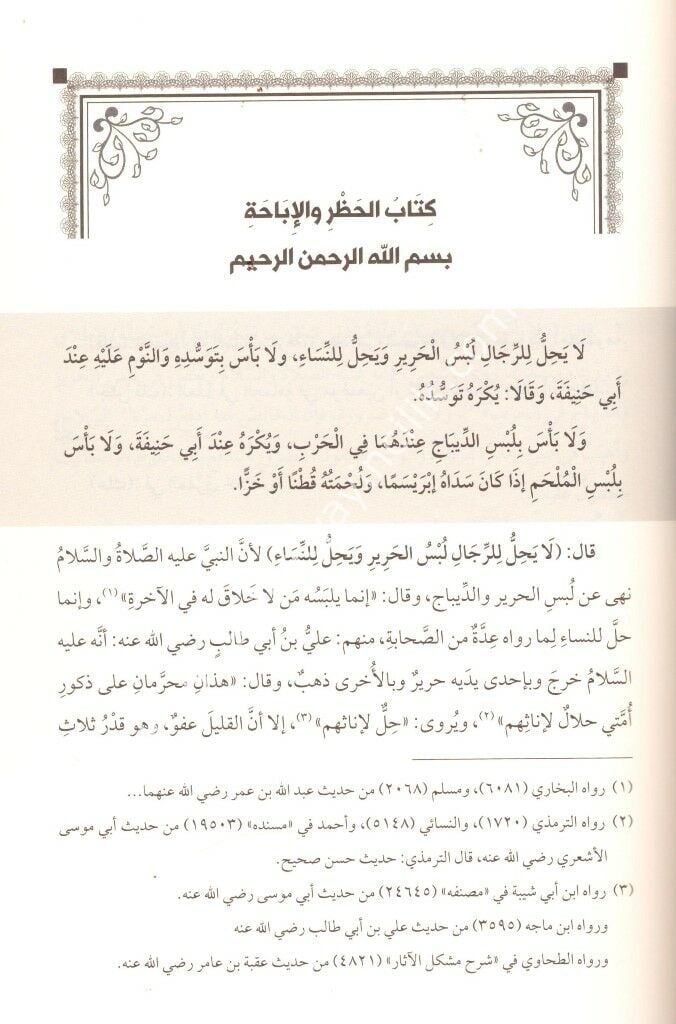 كِتَابُ الحَظْرِ والإِبَاحَةِ
بسم الله الرحمن الرحيم
لَا يَحِلُّ لِلرِّجَالِ لُبْسُ الْحَرِيرِ وَيَحِلُّ لِلنِّسَاءِ، ولَا بَأْسَ بِتَوَسُّدِهِ وَالنَّوْمِ عَلَيْهِ عِنْدَ
أَبِي حَنِيفَةَ، وَقَالَا: يُكْرَهُ تَوَسُّدُهُ.
وَلَا بَأْسَ بِلُبْسِ الدِّيبَاجِ عِنْدَهُمَا فِي الْحَرْبِ، وَيُكْرَهُ عِنْدَ أَبِي حَنِيفَةَ، وَلَا بَأْسَ
بِلُبْسِ الْمُلْحَمِ إِذَا كَانَ سَدَاهُ إِبْرَيْسَمًا، وَلُحْمَتُهُ قُطْنًا أَوْ خَزًّا.
قال: (لَا يَحِلُّ لِلرِّجَالِ لُبْسُ الحَرِيرِ وَيَحِلُّ لِلنِّسَاءِ) لأنَّ النبيَّ عليه الصَّلاةُ والسَّلامُ
نهى عن لُبسِ الحرير والدِّيباج، وقال: «إنما يلبَسُه مَن لا خَلاقَ له في الآخرةِ» (١)، وإنما
حلَّ للنساءِ لِما رواه عِدَّةٌ من الصَّحابةِ، منهم: عليُّ بنُ أبي طالبٍ رضي الله عنه: أنَّه عليه
السَّلامُ خرجَ وبإحدى يدَيه حريرٌ وبالأُخرى ذهبٌ، وقال: «هذانِ محرَّمان على ذكورِ
أُمَّتي حلالٌ لإناثِهم» (٢)، ويُروى: «حِلٌّ لإناثِهم» (٣)، إلا أنَّ القليلَ عفوٌ، وهو قدْرُ ثلاثِ
(١) رواه البخاري (٦٠٨١)، ومسلم (٢٠٦٨) من حديث عبد الله بن عمر رضي الله عنهما...
(٢) رواه الترمذي (١٧٢٠)، والنسائي (٥١٤٨)، وأحمد في «مسنده» (١٩٥٠٣) من حديث أبي موسى
الأشعري رضي الله عنه، قال الترمذي: حديث حسن صحيح.
(٣) رواه ابن أبي شيبة في «مصنفه» (٢٤٦٤٥) من حديث أبي موسى رضي الله عنه.
ورواه ابن ماجه (٣٥٩٥) من حديث علي بن أبي طالب رضي الله عنه
ورواه الطحاوي في «شرح مشكل الآثار» (٤٨٢١) من حديث عقبة بن عامر رضي الله عنه.